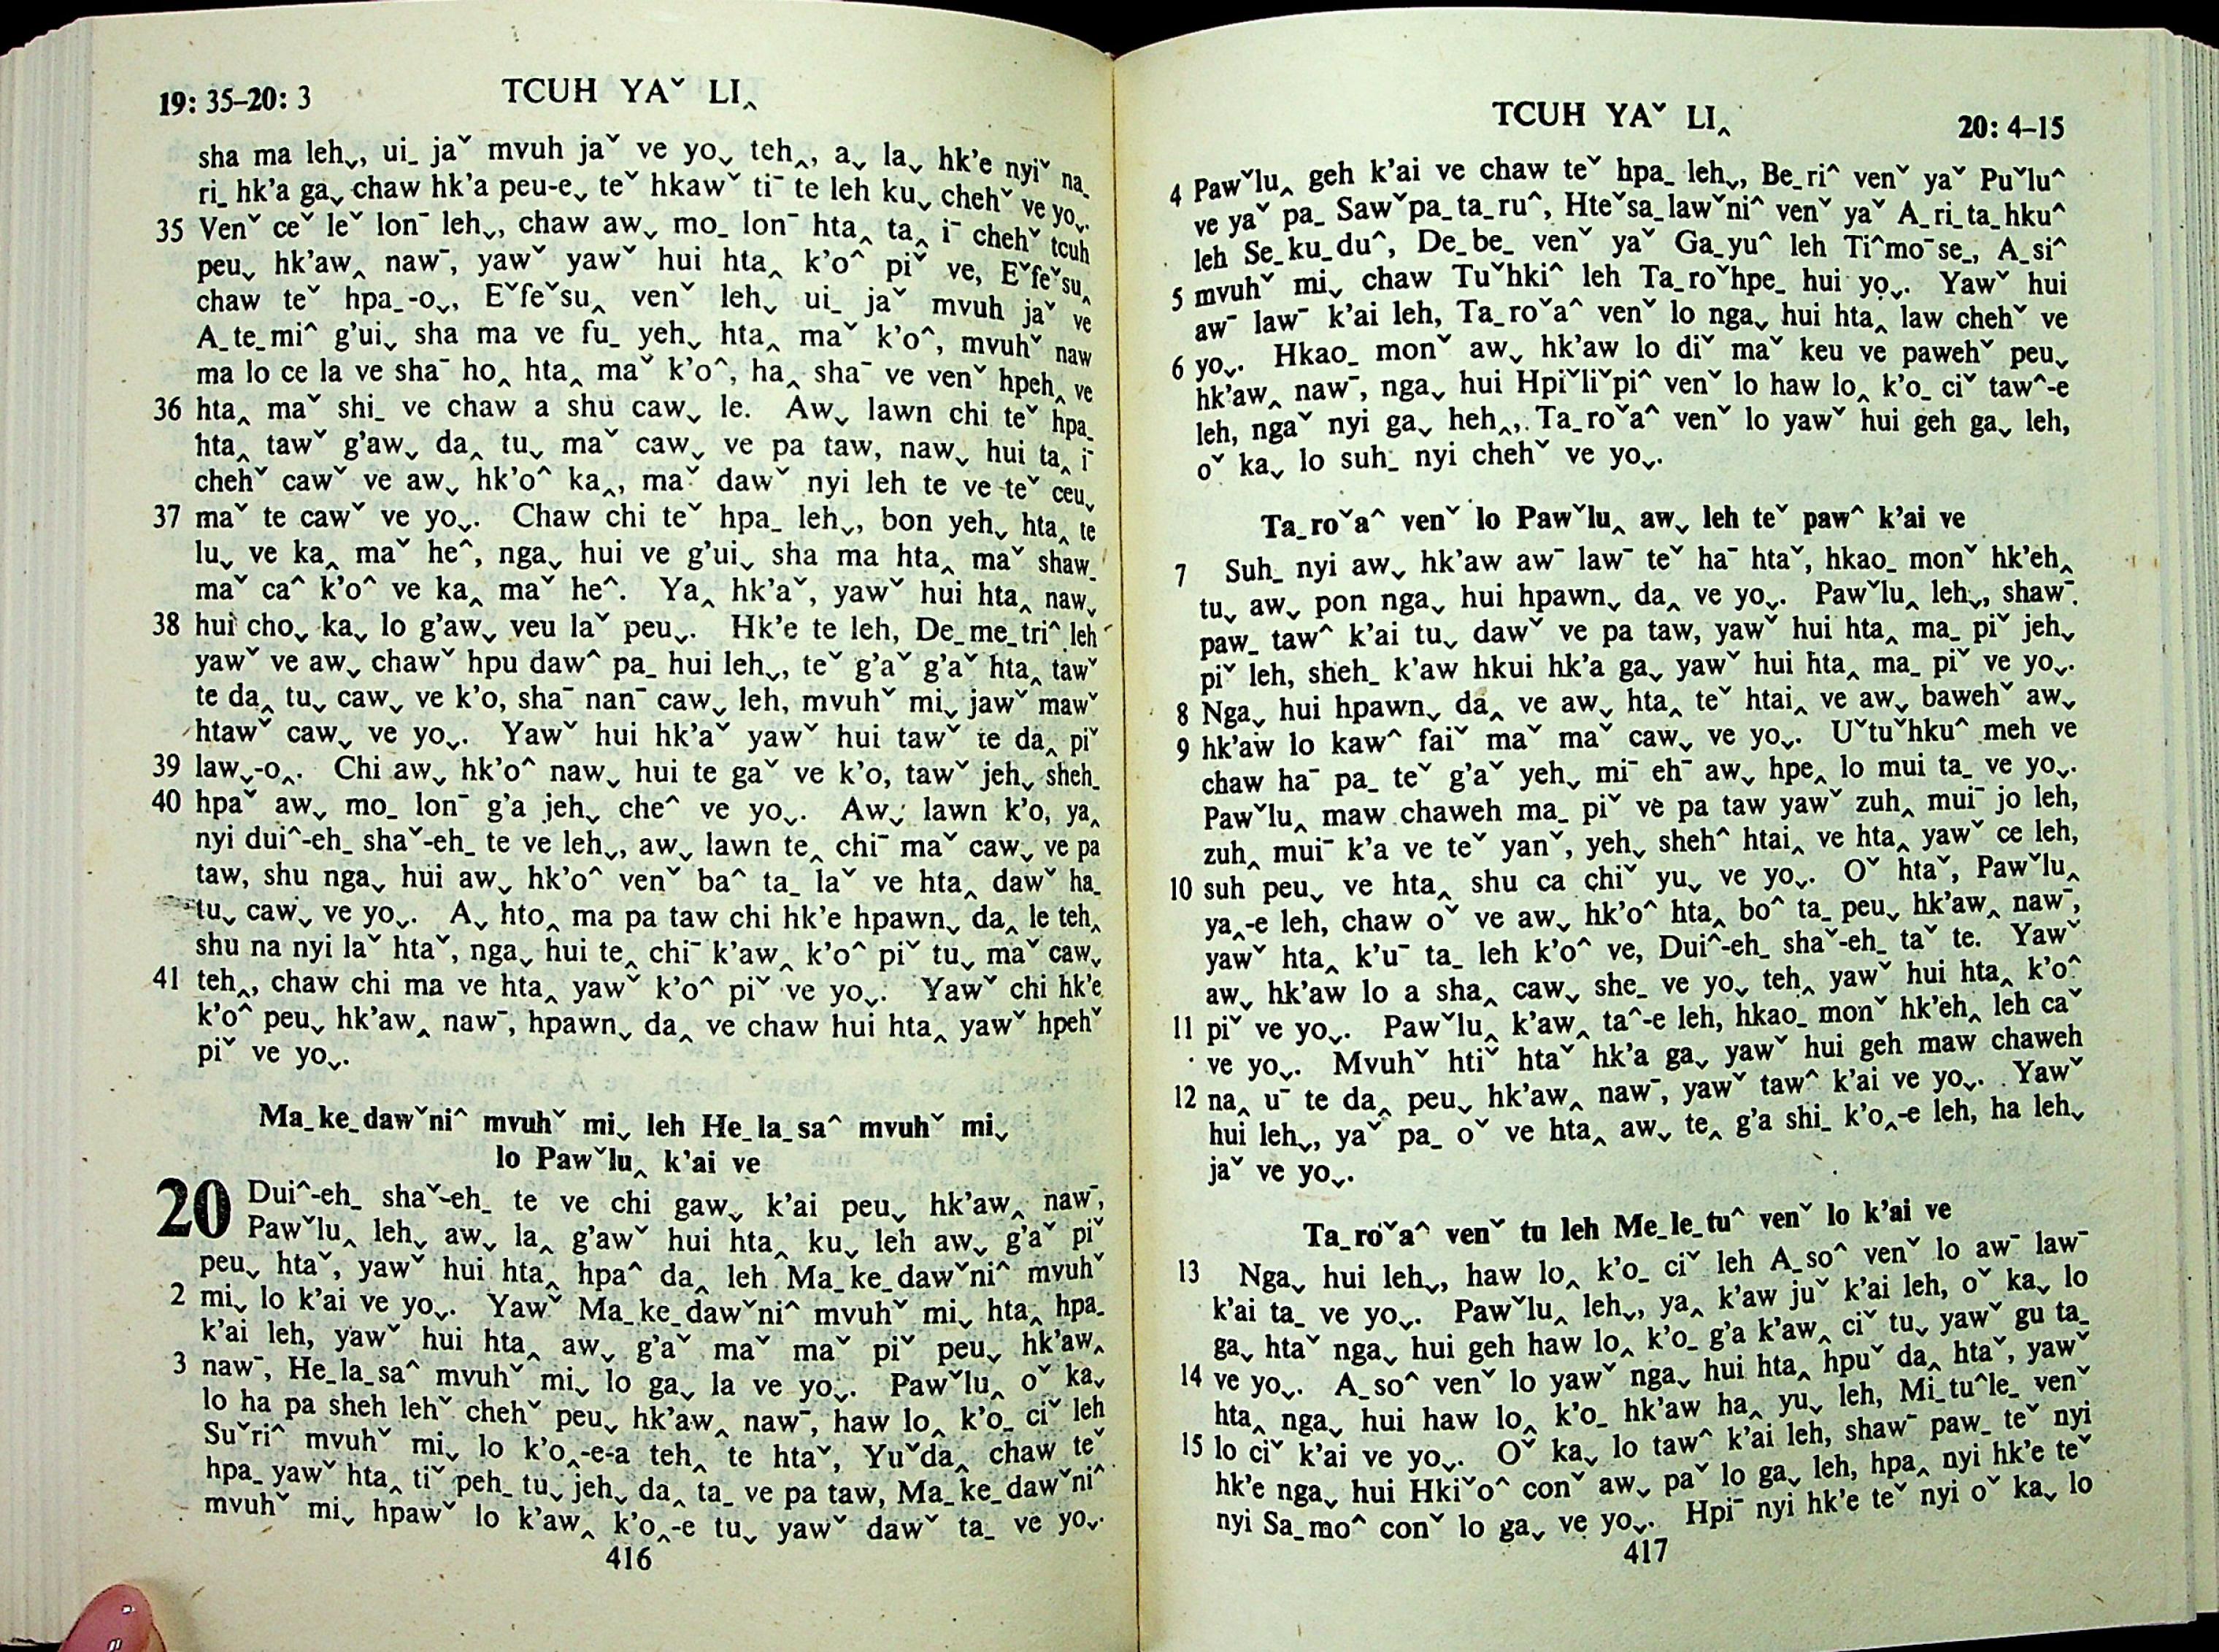 19: 35–20: 3
TCUH YAˇ LI‸
sha ma leh⌄, ui_ jaˇ mvuh jaˇ ve yo⌄ teh‸, a⌄ la⌄ hk'e nyiˇ na_
ri_ hk'a ga⌄ chaw hk'a peu-e⌄ teˇ hkawˇ tiˉ te leh ku⌄ chehˇ ve yo⌄.
35 Venˇ ceˇ leˇ lonˉ leh⌄, chaw aw⌄ mo_ lonˉ hta‸ ta‸ iˉ chehˇ tcuh
peu⌄ hk'aw‸ nawˉ, yawˇ yawˇ hui hta‸ k'o^ piˇ ve, Eˇfeˇsu‸
chaw teˇ hpa_-o⌄, Eˇfeˇsu‸ venˇ leh⌄ ui_ jaˇ mvuh jaˇ ve
A_te_mi^ g'ui⌄ sha ma ve fu_ yeh⌄ hta‸ maˇ k'o^, mvuhˇ naw
ma lo ce la ve shaˉ ho‸ hta‸ maˇ k'o^, ha‸ shaˉ ve venˇ hpeh‸ ve
36 hta‸ maˇ shi_ ve chaw a shu caw⌄ le. Aw⌄ lawn chi teˇ hpa_
hta‸ tawˇ g'aw⌄ da‸ tu⌄ maˇ caw⌄ ve pa taw, naw⌄ hui ta‸ iˉ
chehˇ cawˇ ve aw⌄ hk'o^ ka‸, maˇ dawˇ nyi leh te ve teˇ ceu⌄
37 maˇ te cawˇ ve yo⌄. Chaw chi teˇ hpa_ leh⌄, bon yeh⌄ hta‸ te
lu⌄ ve ka‸ maˇ he^, nga⌄ hui ve g'ui⌄ sha ma hta‸ maˇ shaw_
maˇ ca^ k'o^ ve ka‸ maˇ he^. Ya‸ hk'aˇ, yawˇ hui hta‸ naw⌄
38 hui cho⌄ ka⌄ lo g'aw⌄ veu laˇ peu⌄. Hk'e te leh, De_me_tri^ leh
yawˇ ve aw⌄ chawˇ hpu daw^ pa_ hui leh⌄, teˇ g'aˇ g'aˇ hta‸ tawˇ
te da‸ tu⌄ caw⌄ ve k'o, shaˉ nanˉ caw⌄ leh, mvuhˇ mi⌄ jawˇ mawˇ
htawˇ caw⌄ ve yo⌄. Yawˇ hui hk'aˇ yawˇ hui tawˇ te da‸ piˇ
39 law⌄-o‸. Chi aw⌄ hk'o^ naw⌄ hui te gaˇ ve k'o, tawˇ jeh⌄ sheh_
40 hpaˇ aw⌄ mo_ lonˉ g'a jeh⌄ che^ ve yo⌄. Aw⌄ lawn k'o, ya‸
nyi dui^-eh_ shaˇ-eh_ te ve leh⌄, aw⌄ lawn te‸ chiˉ maˇ caw⌄ ve pa
taw, shu nga⌄ hui aw⌄ hk'o^ venˇ ba^ ta_ laˇ ve hta‸ dawˇ ha_
tu⌄ caw⌄ ve yo⌄. A⌄ hto‸ ma pa taw chi hk'e hpawn⌄ da‸ le teh‸
shu na nyi laˇ htaˇ, nga⌄ hui te‸ chiˉ k'aw‸ k'o^ piˇ tu⌄ maˇ caw⌄
41 teh‸, chaw chi ma ve hta‸ yawˇ k'o^ piˇ ve yo⌄. Yawˇ chi hk'e
k'o^ peu⌄ hk'aw‸ nawˉ, hpawn⌄ da‸ ve chaw hui hta‸ yawˇ hpehˇ
piˇ ve yo⌄.
Ma_ke_dawˇni^ mvuhˇ mi⌄ leh He_la_sa^ mvuhˇ mi⌄
lo Pawˇlu‸ k'ai ve
20 Dui^-eh_ shaˇ-eh_ te ve chi gaw⌄ k'ai peu⌄ hk'aw‸ nawˉ,
Pawˇlu‸ leh⌄ aw⌄ la‸ g'awˇ hui hta‸ ku⌄ leh aw⌄ g'aˇ piˇ
peu⌄ htaˇ, yawˇ hui hta‸ hpa^ da‸ leh Ma_ke_dawˇni^ mvuhˇ
2 mi⌄ lo k'ai ve yo⌄. Yawˇ Ma_ke_dawˇni^ mvuhˇ mi⌄ hta‸ hpa_
k'ai leh, yawˇ hui hta‸ aw⌄ g'aˇ maˇ maˇ piˇ peu⌄ hk'aw‸
3 nawˉ, He_la_sa^ mvuhˇ mi⌄ lo ga⌄ la ve yo⌄. Pawˇlu‸ oˇ ka⌄
lo ha pa sheh lehˇ chehˇ peu⌄ hk'aw‸ nawˉ, haw lo‸ k'o_ ciˇ leh
Suˇri^ mvuhˇ mi⌄ lo k'o‸-e-a teh‸ te htaˇ, Yuˇda‸ chaw teˇ
hpa_ yawˇ hta‸ tiˇ peh_ tu⌄ jeh⌄ da‸ ta_ ve pa taw, Ma_ke_dawˇni^
mvuhˇ mi⌄ hpawˇ lo k'aw‸ k'o‸-e tu⌄ yawˇ dawˇ ta_ ve yo⌄.
416
TCUH YAˇ LI‸
20: 4–15
4 Pawˇlu‸ geh k'ai ve chaw teˇ hpa_ leh⌄, Be_ri^ venˇ yaˇ Puˇlu^
ve yaˇ pa_ Sawˇpa_ta_ru^, Hteˇsa_lawˇni^ venˇ yaˇ A_ri_ta_hku^
leh Se_ku_du^, De_be_ venˇ yaˇ Ga_yu^ leh Ti^moˉse_, A_si^
5 mvuhˇ mi⌄ chaw Tuˇhki^ leh Ta_roˇhpe_ hui yo⌄. Yawˇ hui
awˉ lawˉ k'ai leh, Ta_roˇa^ venˇ lo nga⌄ hui hta‸ law chehˇ ve
6 yo⌄. Hkao_ monˇ aw⌄ hk'aw lo diˇ maˇ keu ve pawehˇ peu⌄
hk'aw‸ nawˉ, nga⌄ hui Hpiˇliˇpi^ venˇ lo haw lo‸ k'o_ ciˇ taw^-e
leh, ngaˇ nyi ga⌄ heh‸, Ta_roˇa^ venˇ lo yawˇ hui geh ga⌄ leh,
oˇ ka⌄ lo suh_ nyi chehˇ ve yo⌄.
Ta_roˇa^ venˇ lo Pawˇlu‸ aw⌄ leh teˇ paw^ k'ai ve
7 Suh_ nyi aw⌄ hk'aw awˉ lawˉ teˇ haˉ htaˇ, hkao_ monˇ hk'eh‸
tu⌄ aw⌄ pon nga⌄ hui hpawn⌄ da‸ ve yo⌄. Pawˇlu‸ leh⌄, shawˉ
paw_ taw^ k'ai tu⌄ dawˇ ve pa taw, yawˇ hui hta‸ ma_ piˇ jeh⌄
piˇ leh, sheh_ k'aw hkui hk'a ga⌄ yawˇ hui hta‸ ma_ piˇ ve yo⌄.
8 Nga⌄ hui hpawn⌄ da‸ ve aw⌄ hta‸ teˇ htai‸ ve aw⌄ bawehˇ aw⌄
9 hk'aw lo kaw^ faiˇ maˇ maˇ caw⌄ ve yo⌄. Uˇtuˇhku^ meh ve
chaw haˉ pa_ teˇ g'aˇ yeh⌄ miˉ ehˉ aw⌄ hpe‸ lo mui ta_ ve yo⌄.
Pawˇlu‸ maw chaweh ma_ piˇ ve pa taw yawˇ zuh‸ muiˉ jo leh,
zuh‸ muiˉ k'a ve teˇ yanˇ, yeh⌄ sheh^ htai‸ ve hta‸ yawˇ ce leh,
10 suh peu⌄ ve hta‸ shu ca chiˇ yu⌄ ve yo⌄. Oˇ htaˇ, Pawˇlu‸
ya‸-e leh, chaw oˇ ve aw⌄ hk'o^ hta‸ bo^ ta_ peu⌄ hk'aw‸ nawˉ,
yawˇ hta‸ k'uˉ ta_ leh k'o^ ve, Dui^-eh_ shaˇ-eh_ taˇ te. Yawˇ
aw⌄ hk'aw lo a sha‸ caw⌄ she_ ve yo⌄ teh‸ yawˇ hui hta‸ k'o^
11 piˇ ve yo⌄. Pawˇlu‸ k'aw‸ ta^-e leh, hkao_ monˇ hk'eh‸ leh caˇ
ve yo⌄. Mvuhˇ htiˇ htaˇ hk'a ga⌄ yawˇ hui geh maw chaweh
12 na‸ uˉ te da‸ peu⌄ hk'aw‸ nawˉ, yawˇ taw^ k'ai ve yo⌄. Yawˇ
hui leh⌄, yaˇ pa_ oˇ ve hta‸ aw⌄ te‸ g'a shi_ k'o‸-e leh, ha leh⌄
jaˇ ve yo⌄.
Ta_roˇa^ venˇ tu leh Me_le_tu^ venˇ lo k'ai ve
13 Nga⌄ hui leh⌄, haw lo‸ k'o_ ciˇ leh A_so^ venˇ lo awˉ lawˉ
k'ai ta_ ve yo⌄. Pawˇlu‸ leh⌄, ya‸ k'aw juˇ k'ai leh, oˇ ka⌄ lo
ga⌄ htaˇ nga⌄ hui geh haw lo‸ k'o_ g'a k'aw‸ ciˇ tu⌄ yawˇ gu ta_
14 ve yo⌄. A_so^ venˇ lo yawˇ nga⌄ hui hta‸ hpuˇ da‸ htaˇ, yawˇ
hta‸ nga⌄ hui haw lo‸ k'o_ hk'aw ha‸ yu⌄ leh, Mi_tu^le_ venˇ
15 lo ciˇ k'ai ve yo⌄. Oˇ ka⌄ lo taw^ k'ai leh, shawˉ paw_ teˇ nyi
hk'e nga⌄ hui Hkiˇo^ conˇ aw⌄ paˇ lo ga⌄ leh, hpa‸ nyi hk'e teˇ
nyi Sa_mo^ conˇ lo ga⌄ ve yo⌄. Hpiˉ nyi hk'e teˇ nyi oˇ ka⌄ lo
417